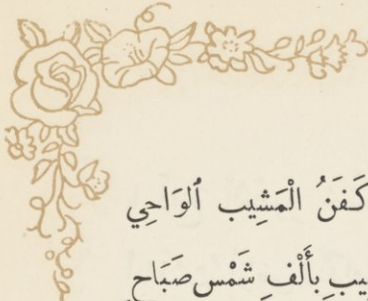 كَفَنُ الْمَشِيب ٱلوَاحِي
بِأَلْفِ شَمْسِ صَبَاحِ